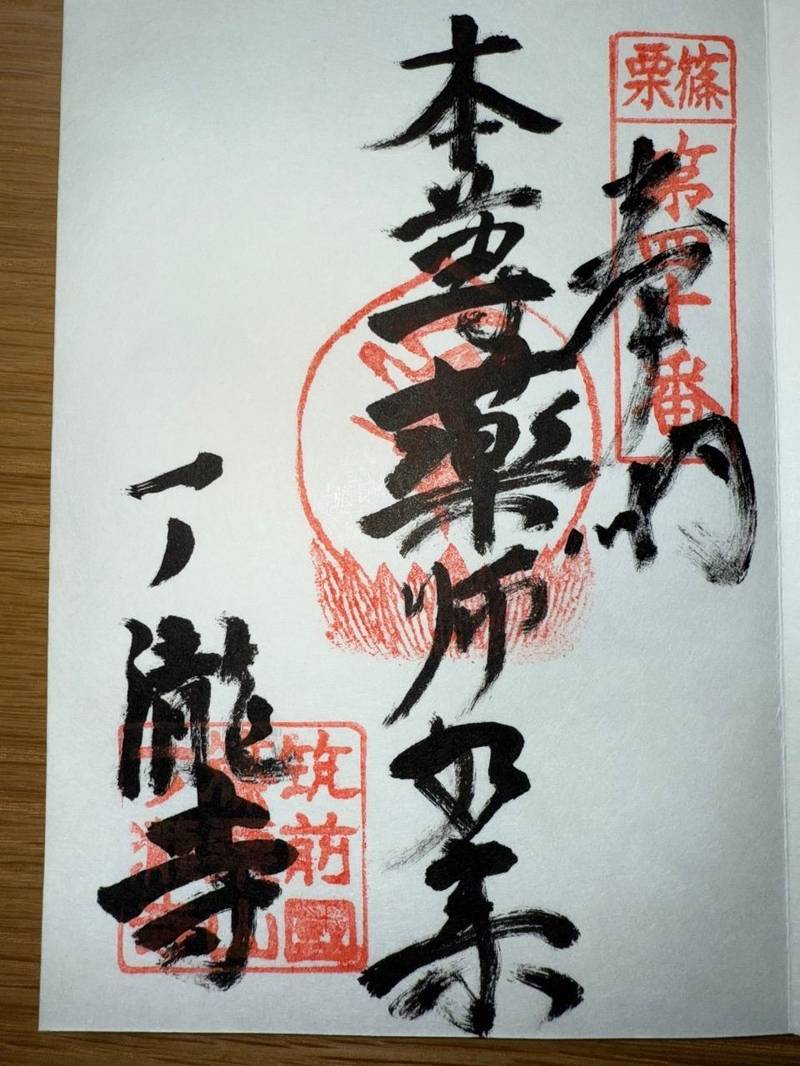 篠栗
第四十番
奉納
本尊薬師如来
一ノ瀧寺
筑前國